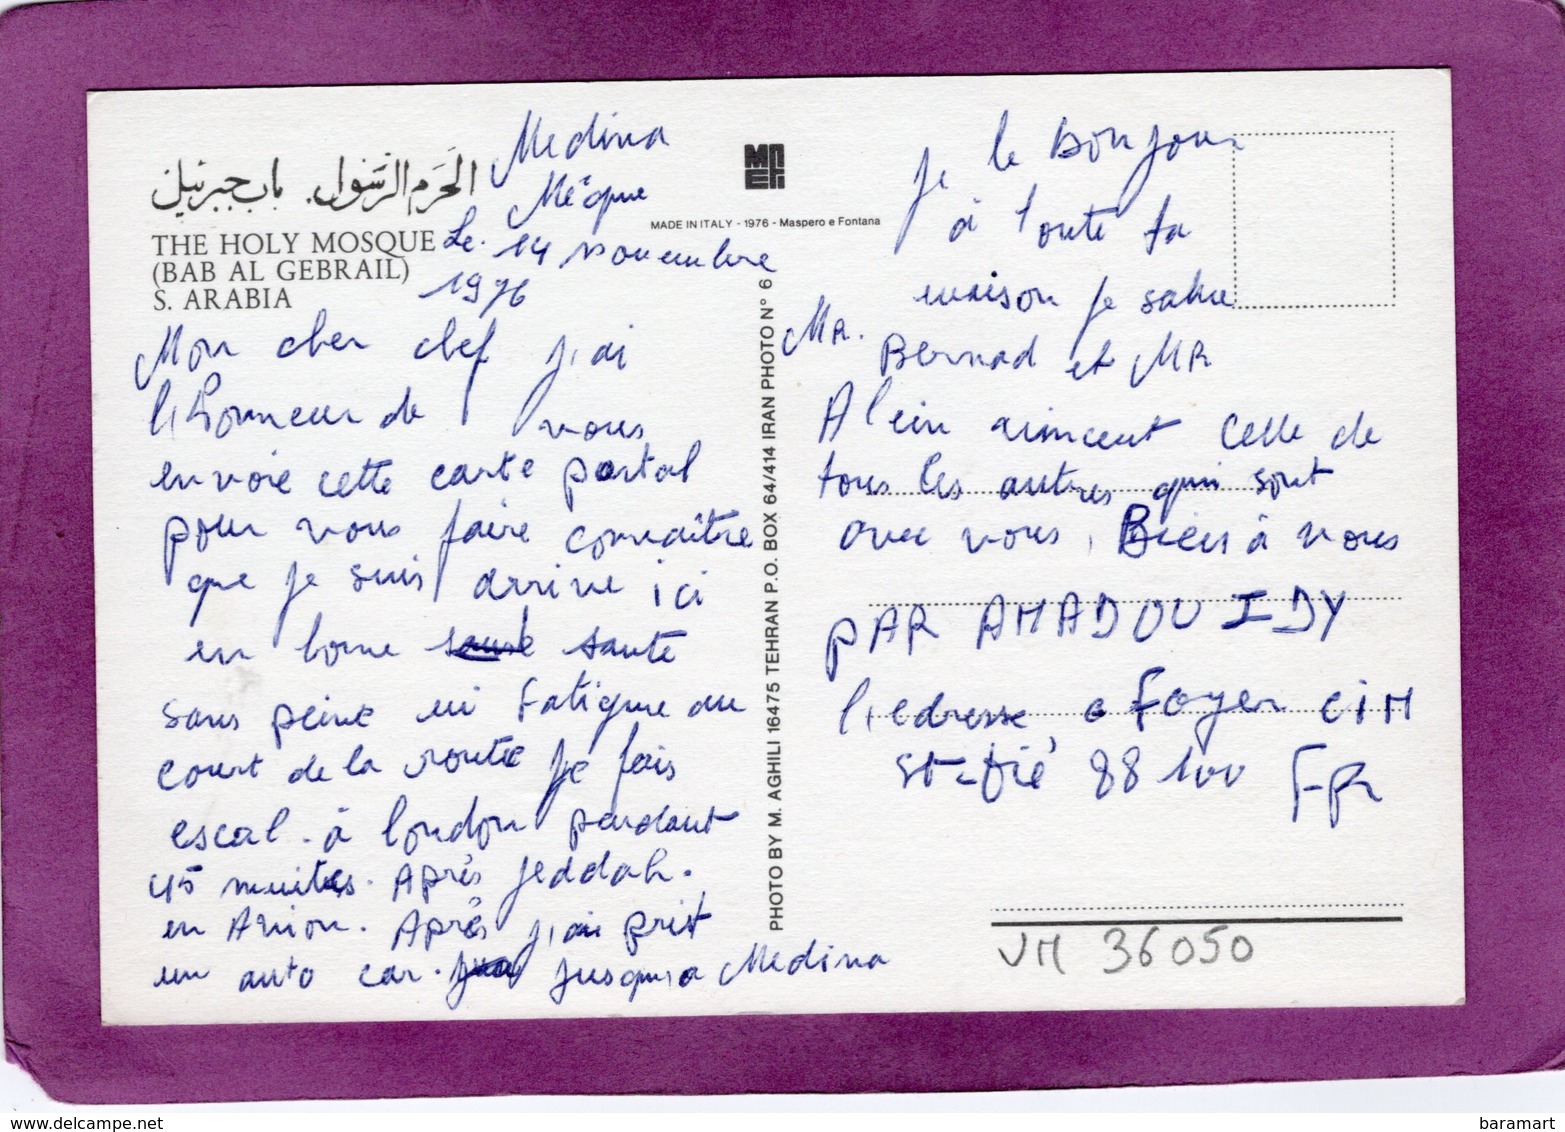 الحرم الرسول. باب جبرئيل
THE HOLY MOSQUE
(BAB AL GEBRAIL)
S. ARABIA
Medina
Mèque
Le. 14 novembre
1976
Mon cher chef j'ai
l'honneur de vous
envoie cette carte postal
pour vous faire connaître
que je suis arrive ici
en bonne santé
sans peine ni fatigue au
court de la route je fais
escal. à london pendant
45 minites. Après Jeddah.
en Avion. Après j'ai prist
un auto car. jusqu'a Medina
MADE IN ITALY - 1976 - Maspero e Fontana
PHOTO BY M. AGHILI 16475 TEHRAN P.O. BOX 64/414 IRAN PHOTO N° 6
je le Bonjour
à toute ta
maison je salue
MR. Bernad et MR
Alein aimceut celle de
tous les autres qui sont
avec vous. Bien à vous
PAR AMADOU IDY
l'edresse a Foyer CIM
St-Dié 88100 FR
VM 36050
baramart